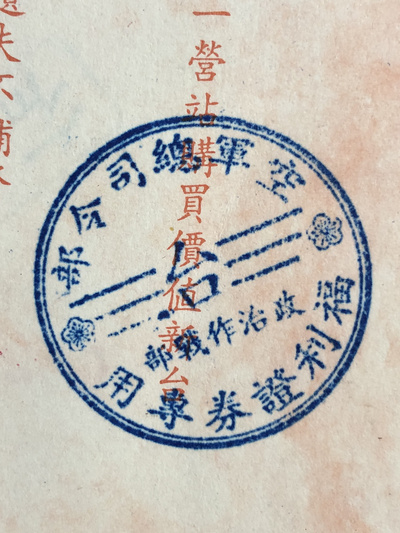 一營站購買價值新台
失不補
空軍總司令部
政治作戰部
福利證券專用